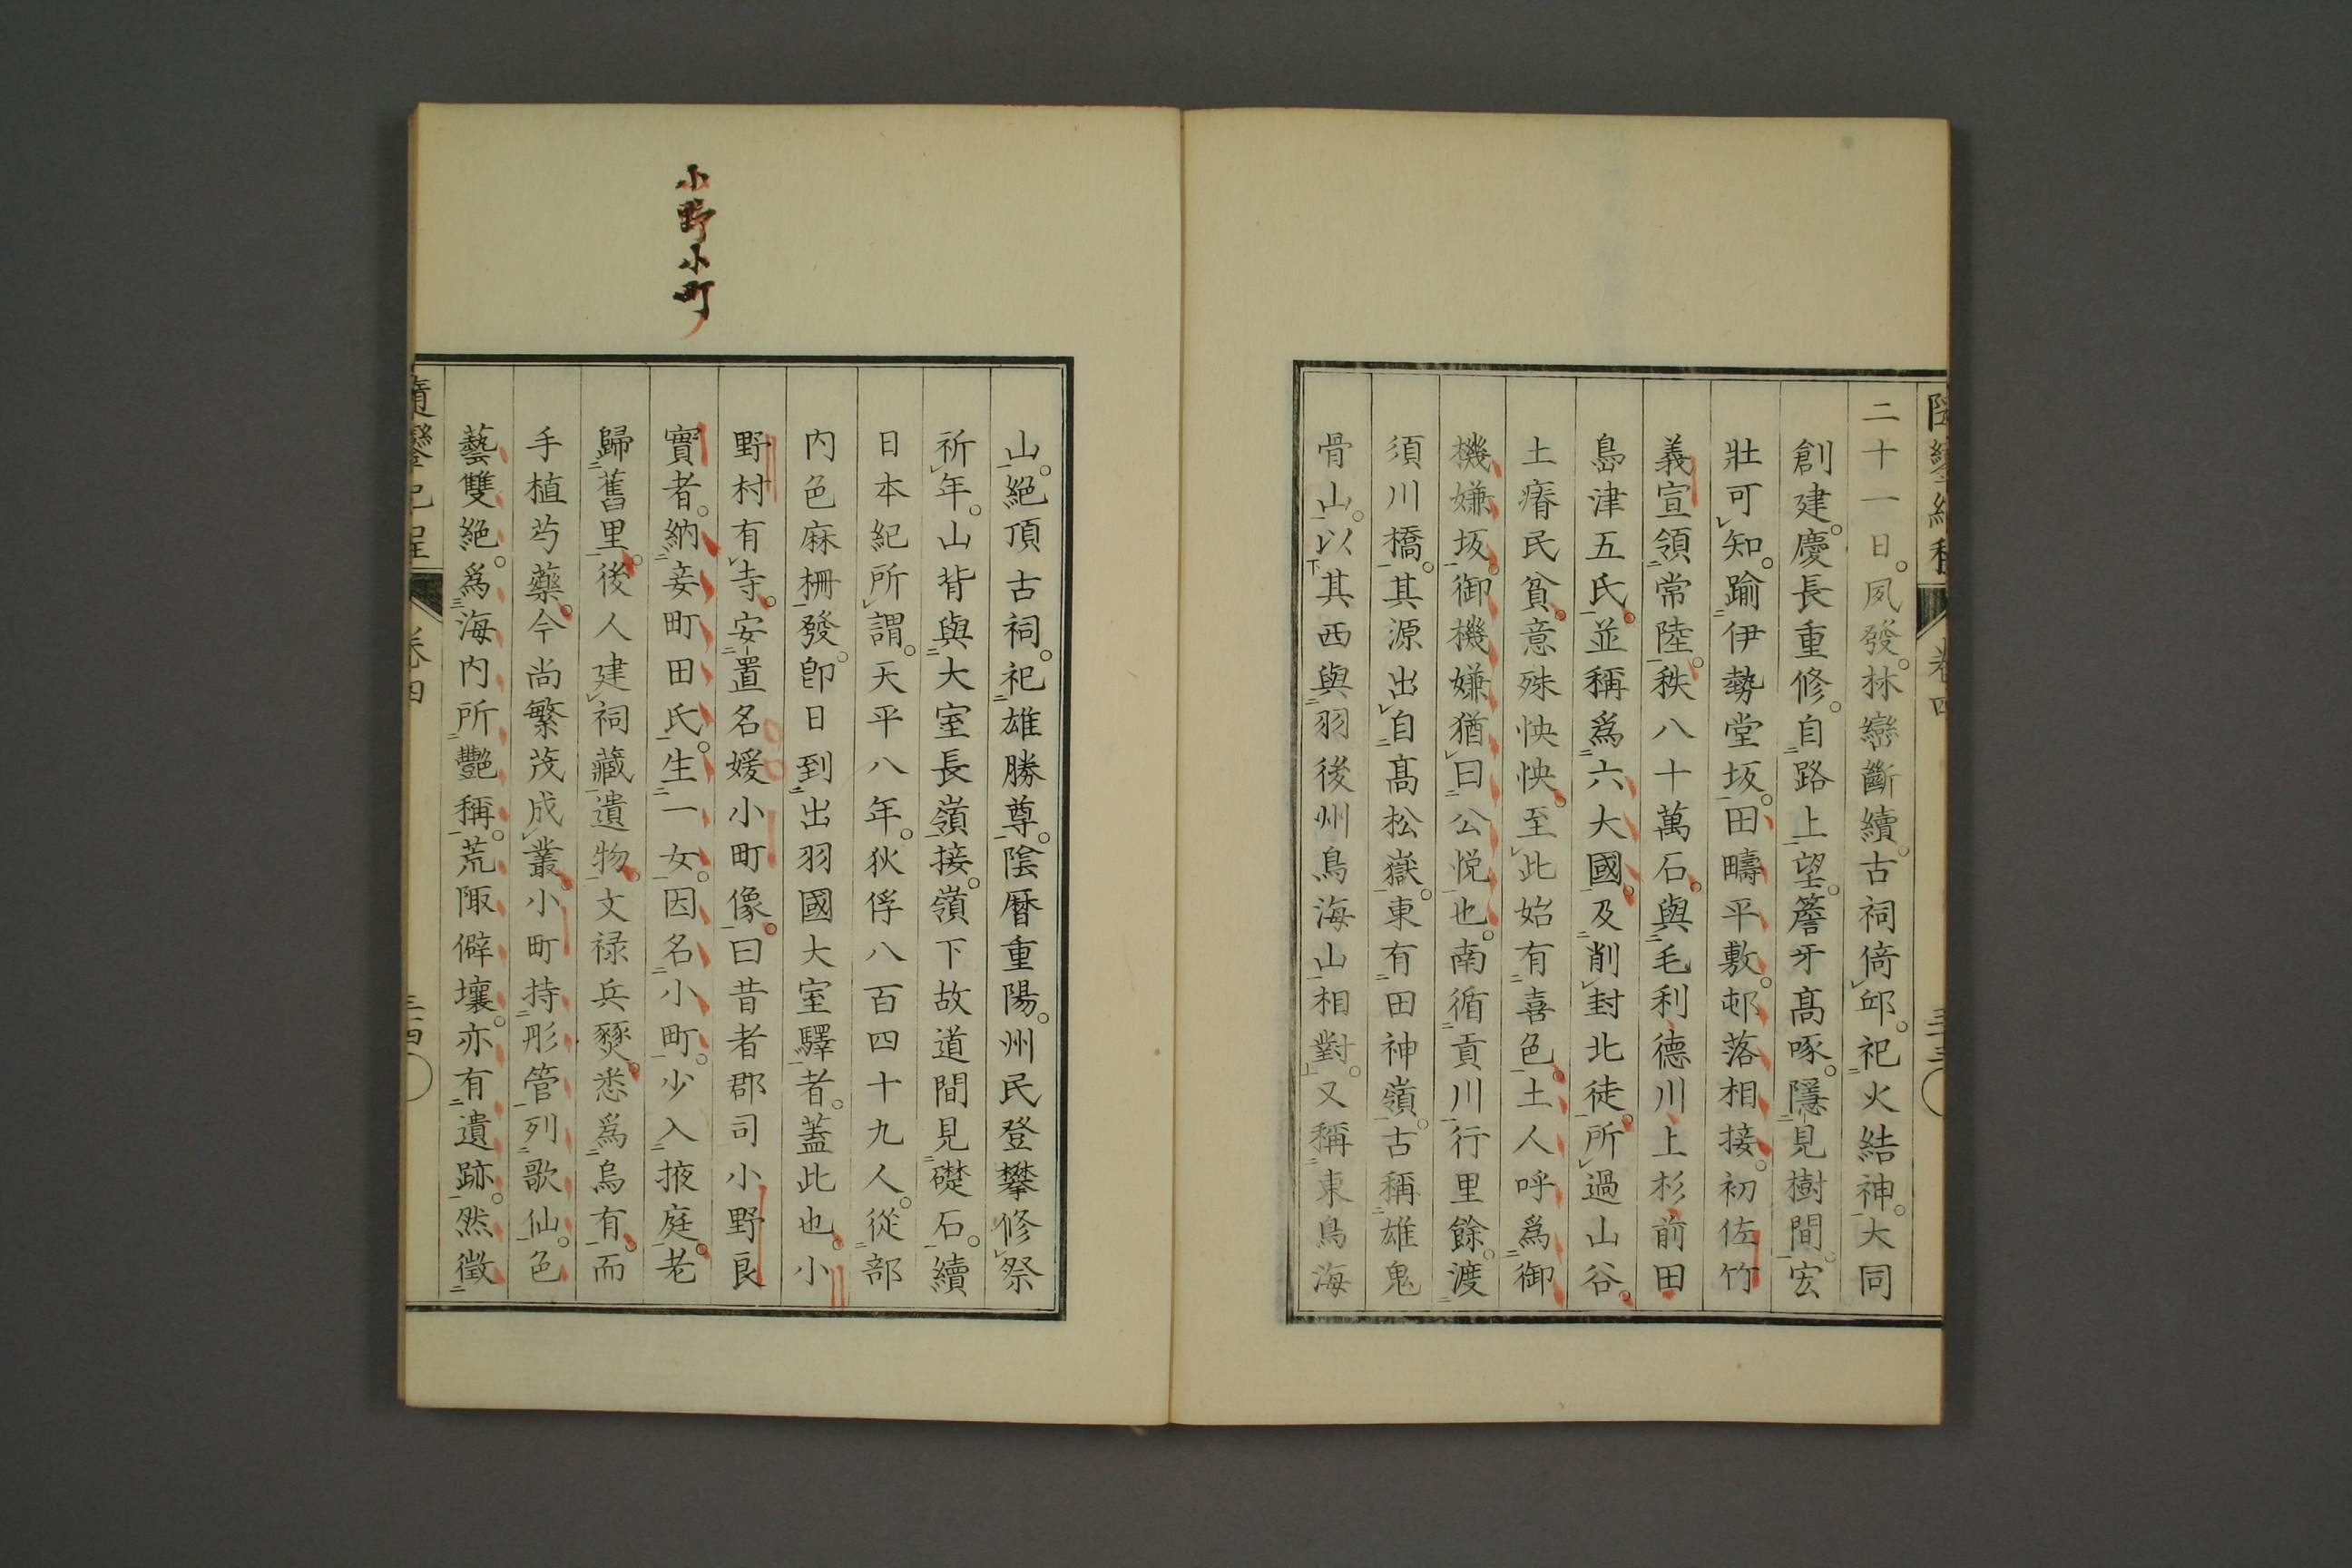 二十一日。夙發。林巒斷續。古祠倚邱。祀火結神。大同
創建。慶長重修。自路上望。簷牙高啄。隱見樹間。宏
壯可知。踰伊勢堂坂。田疇平敷。邨落相接。初佐竹
義宣領常陸。秩八十萬石。與毛利德川上杉前田
島津五氏。並稱爲六大國。及削封北徒。所過山谷。
土瘠民貧。意殊怏怏。至此始有喜色。土人呼爲御
機嫌坂。御機嫌猶曰公悅也。南循貢川行里餘。渡
須川橋。其源出自高松嶽。東有田神嶺。古稱雄鬼
骨山。以其西與羽後州鳥海山相對。又稱東鳥海
山。絕頂古祠。祀雄勝尊。陰曆重陽。州民登攀修祭
祈年。山背與大室長嶺接。嶺下故道間見礎石。續
日本紀所謂。天平八年。狄俘八百四十九人。從部
内色麻柵發。卽日到出羽國大室驛者。蓋此也。小
野村有寺。安置名媛小町像。曰昔者郡司小野良
實者。納妾町田氏。生一女。因名小町。少入掖庭。老
歸舊里。後人建祠藏遺物。文禄兵燹。悉爲烏有。而
手植芍藥。今尚繁茂成叢。小町持彤管列歌仙。色
藝雙絕。爲海内所艷稱。荒陬僻壤。亦有遺跡。然徵
小野小町
隨鑾紀程
卷四
三十四
卷四
三十三